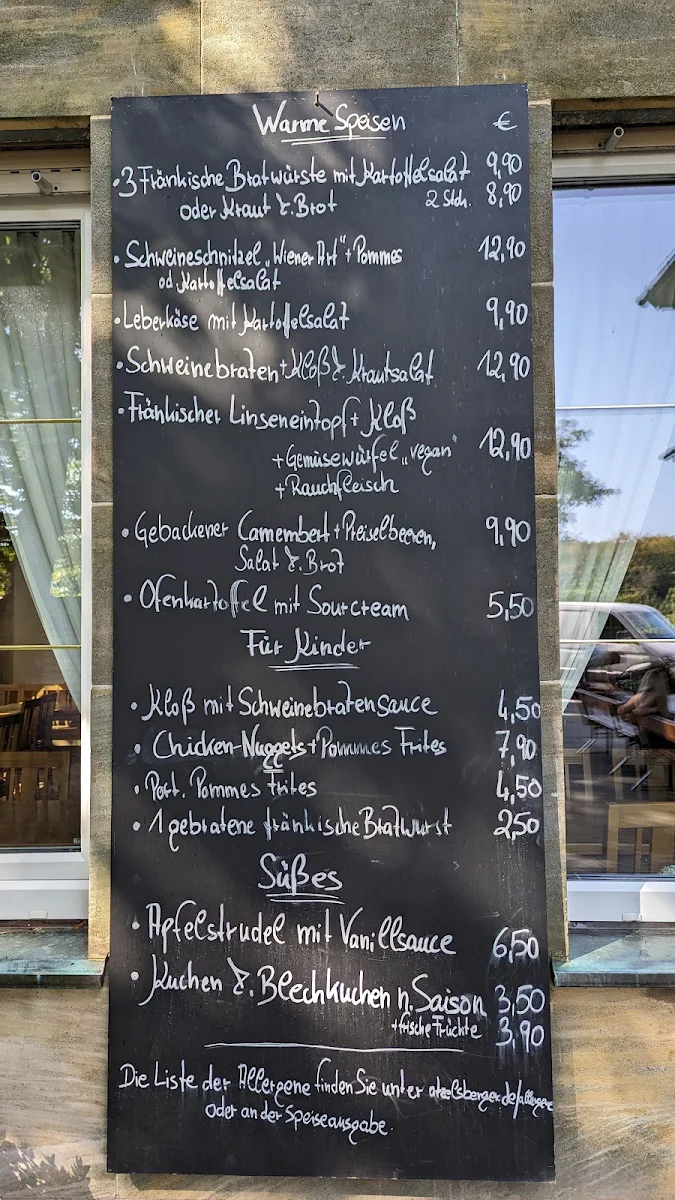 Warme Speisen €
• 3 Fränkische Bratwürste mit Kartoffelsalat 9,90
oder Kraut & Brot 2 Stck. 8,90
• Schweineschnitzel „Wiener Art" + Pommes 12,90
od Kartoffelsalat
• Leberkäse mit Kartoffelsalat 9,90
• Schweinebraten + Kloß & Krautsalat 12,90
• Fränkischer Linseneintopf + Kloß
+ Gemüsewürfel „vegan" 12,90
+ Rauchfleisch
• Gebackener Camembert + Preiselbeeren, 9,90
Salat & Brot
• Ofenkartoffel mit Sourcream 5,50
Für Kinder
• Kloß mit Schweinebratensauce 4,50
• Chicken-Nuggets + Pommes Frites 7,90
• Port. Pommes Frites 4,50
• 1 gebratene fränkische Bratwurst 2,50
Süßes
• Apfelstrudel mit Vanillsauce 6,50
• Kuchen & Blechkuchen n. Saison 3,50
+ frische Früchte 3,90
Die Liste der Allergene finden Sie unter
oder an der Speiseausgabe.